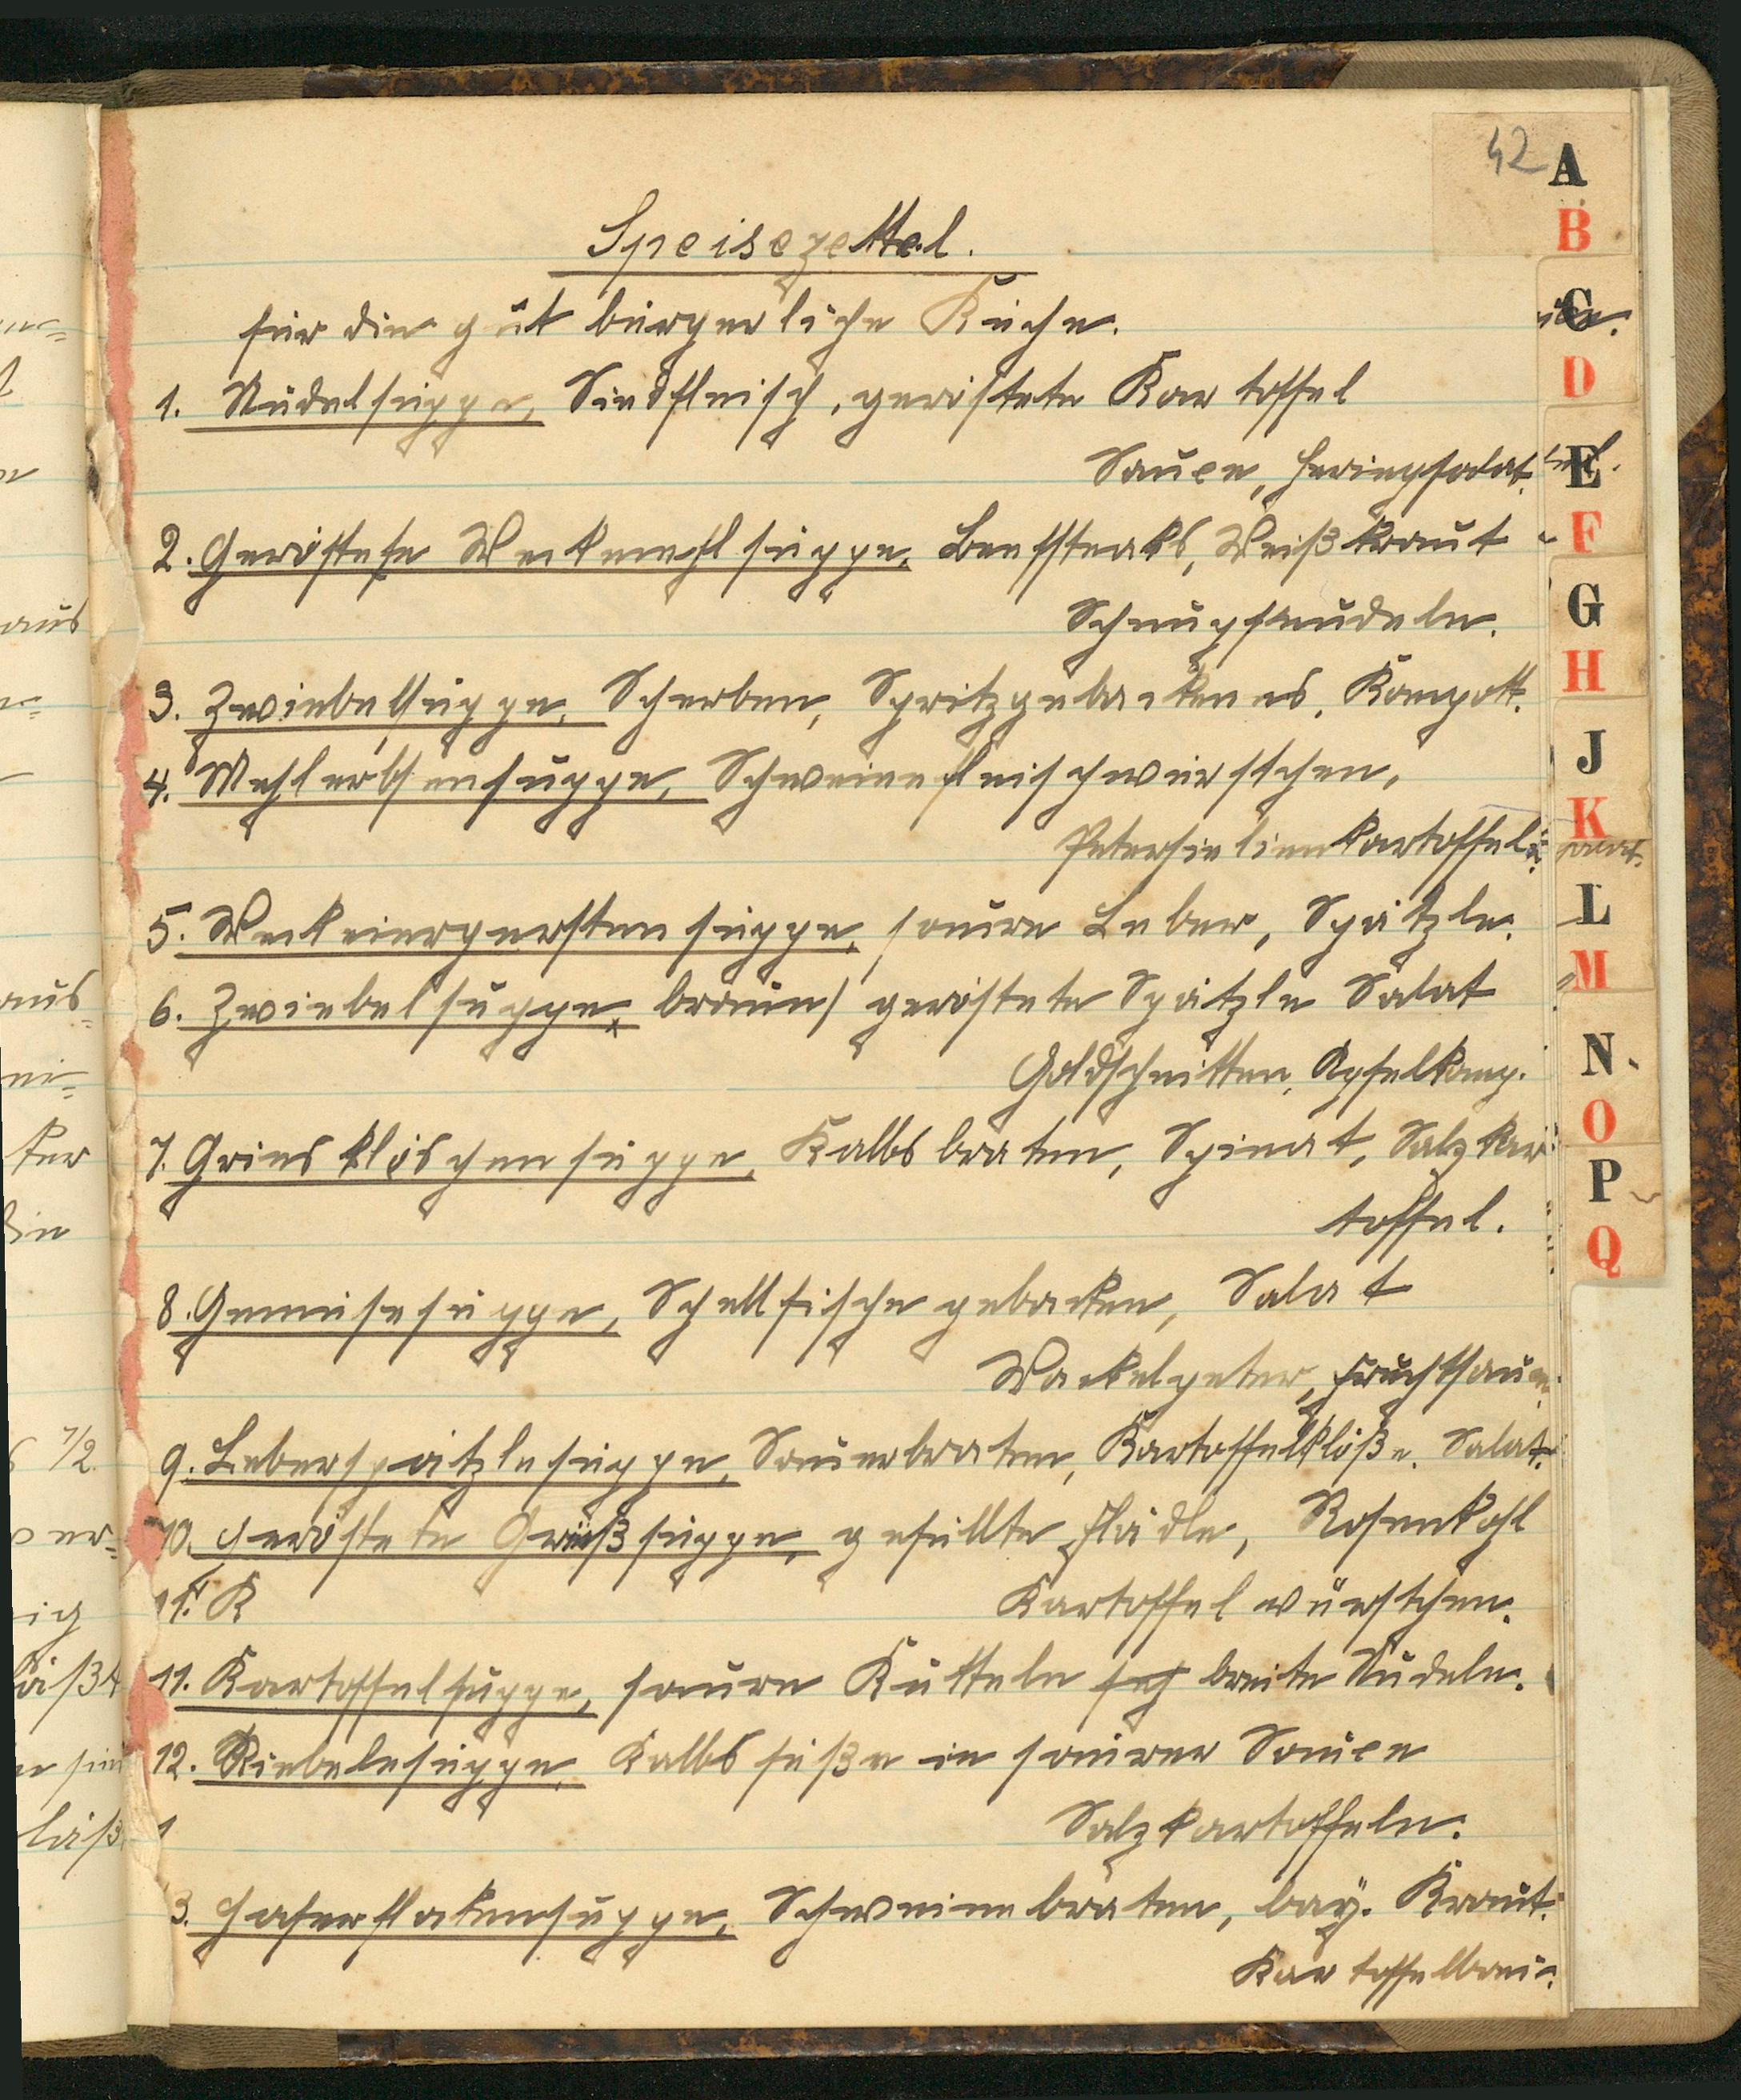 42
Speisezettel.
für die gut bürgerliche Küche.
1. Nudelsuppe, Siedfleisch, geröstete Kartoffel
Sauce, Heringsalat.
2. Geröstete Weckmehlsuppe, Beefsteaks, Weißkraut
Schnupfnudeln.
3. Zwiebelsuppe, Scherben, Spritzgebackenes, Kompott.
4. Mehlerbsensuppe, Schweinefleischwürstchen,
Petersilienkartoffel.
5. Weckeiergerstensuppe, saure Leber, Spätzle.
6. Zwiebelsuppe, braun/ geröstete Spätzle Salat
Goldschnitten, Apfelkomp.
7. Griesklöschensuppe, Kalbsbraten, Spinat, Salzkar
toffel.
8. Gemüsesuppe, Schellfische gebacken, Salat
Wackelpeter, Fruchtsauce
9. Leberspätzlesuppe, Sauerbraten, Kartoffelklöße, Salat.
10. geröstete Grießsuppe, gefüllte Flädle, Rosenkohl
11. K Kartoffelwürstchen.
11. Kartoffelsuppe, saure Kutteln breite Nudeln.
12. Riebelesuppe, Kalbsfüße in saurer Sauce
1 Salzkartoffeln.
3. Haferflockensuppe, Schweinebraten, bay. Kraut.
Kartoffelbrei.
A
B
C
D
E
F
G
H
J
K
L
M
N
O
P
Q
aus
aus
ker
die
1/2